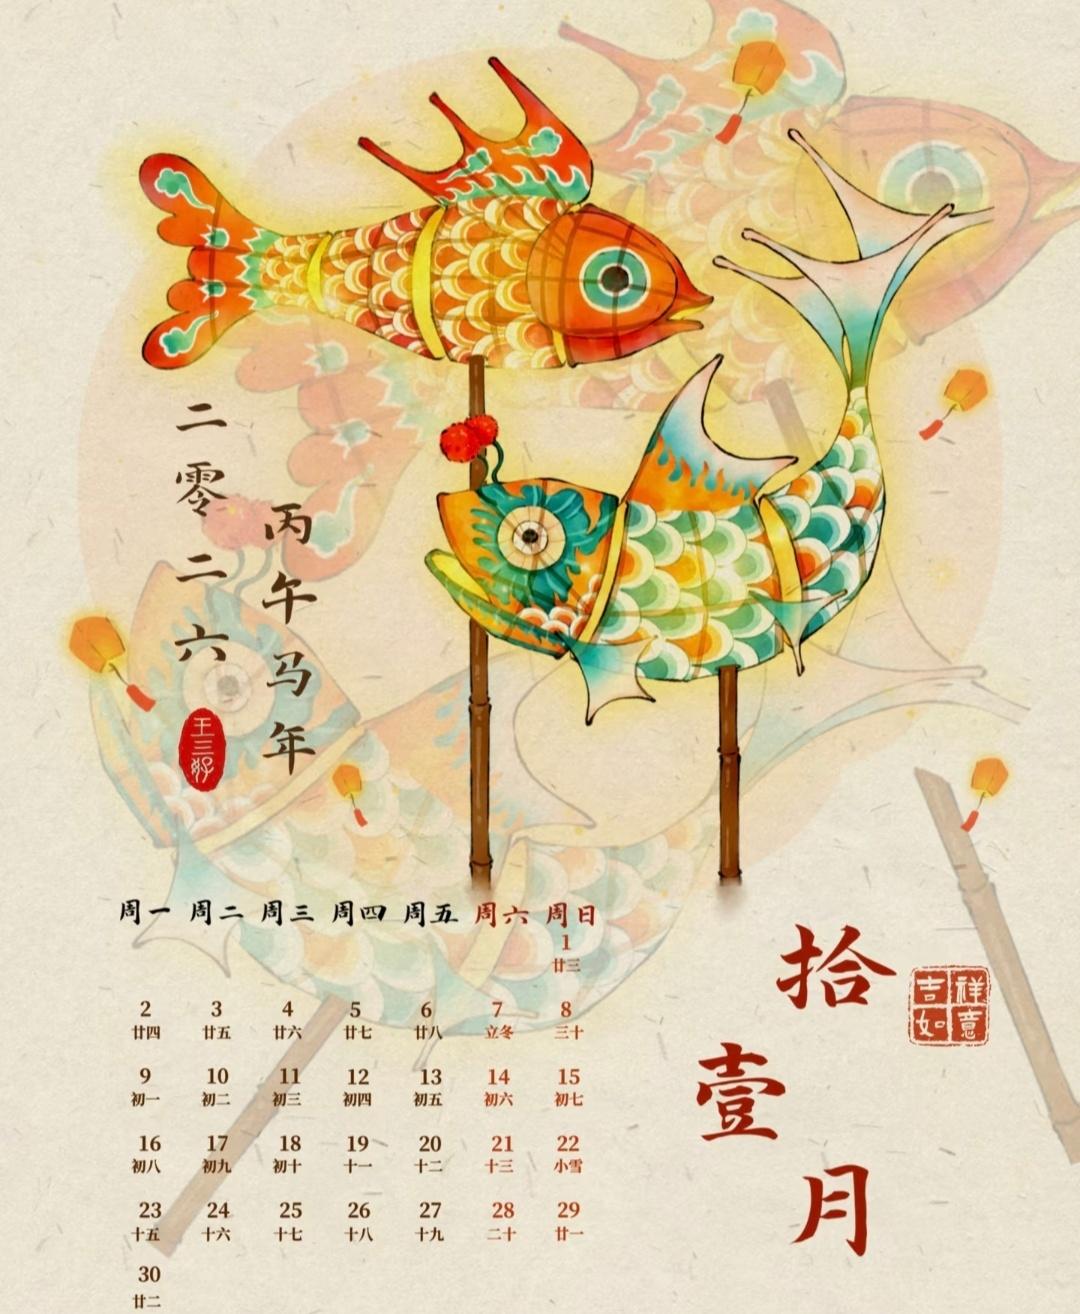 二零二六
丙午马年
王三好
周一 周二 周三 周四 周五 周六 周日
1
廿三
2 3 4 5 6 7 8
廿四 廿五 廿六 廿七 廿八 立冬 三十
9 10 11 12 13 14 15
初一 初二 初三 初四 初五 初六 初七
16 17 18 19 20 21 22
初八 初九 初十 十一 十二 十三 小雪
23 24 25 26 27 28 29
十五 十六 十七 十八 十九 二十 廿一
30
廿二
拾壹月
吉祥
如意